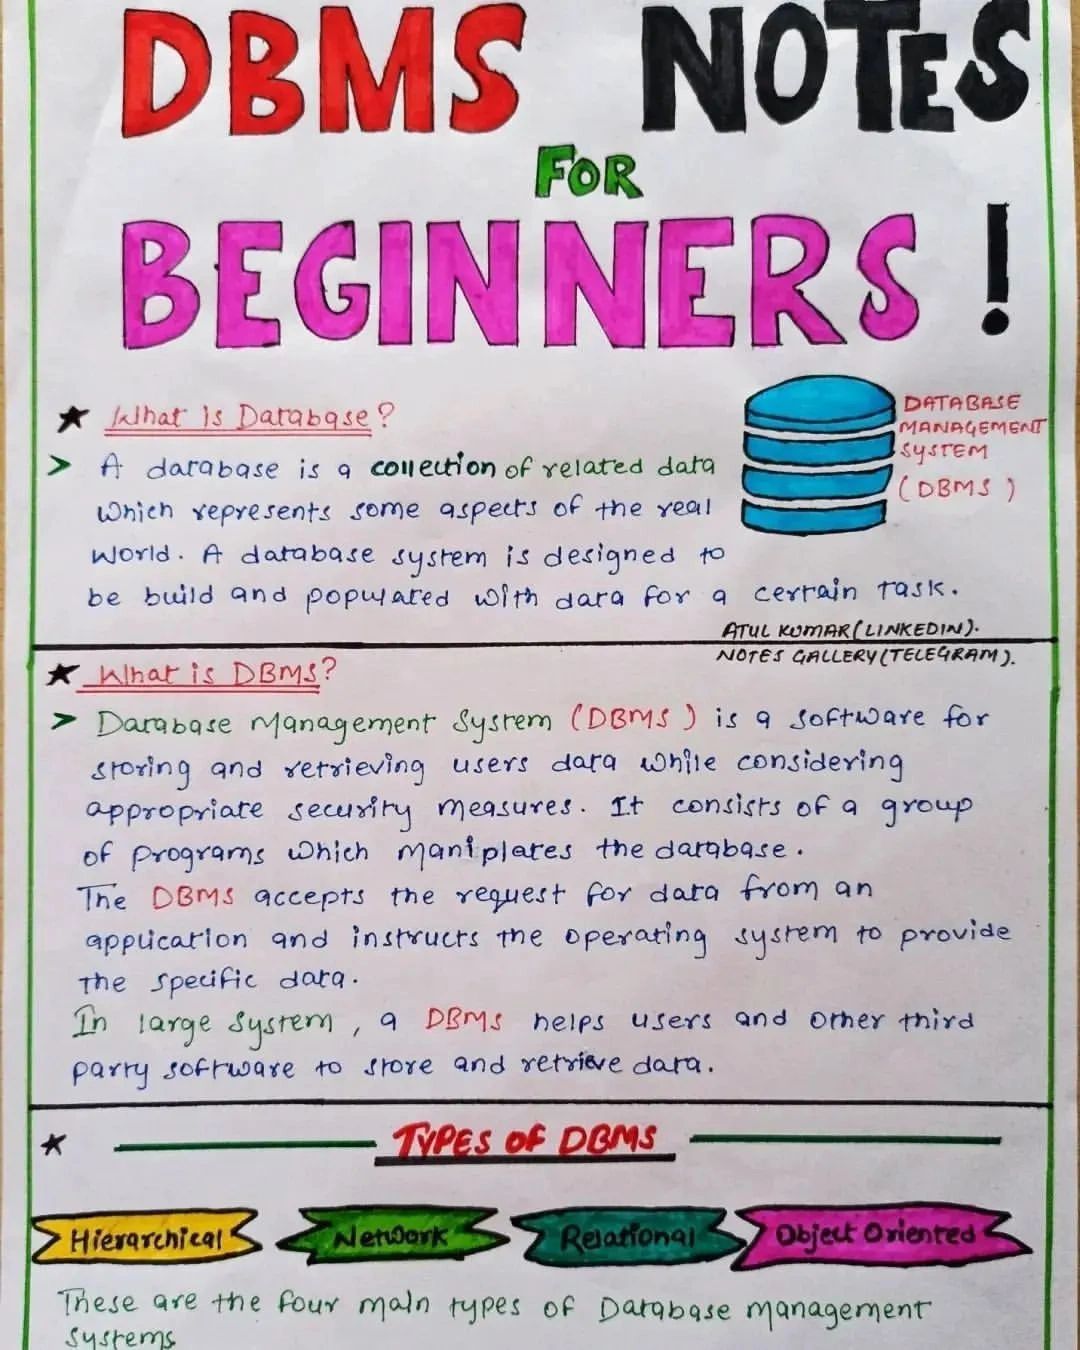 DBMS NOTES
FOR
BEGINNERS !
★ What Is Database?
DATABASE
MANAGEMENT
SYSTEM
(DBMS)
➤ A database is a collection of related data
which represents some aspects of the real
world. A database system is designed to
be build and populated with data for a certain task.
ATUL KUMAR(LINKEDIN).
NOTES GALLERY(TELEGRAM).
★ What is DBMS?
➤ Database Management System (DBMS) is a software for
storing and retrieving users data while considering
appropriate security measures. It consists of a group
of programs which maniplates the database.
The DBMS accepts the request for data from an
application and instructs the operating system to provide
the specific data.
In large system, a DBMS helps users and other third
party software to store and retrieve data.
★ TYPES OF DBMS
Hierarchical Network Relational Object Oriented
These are the four main types of Database management
systems